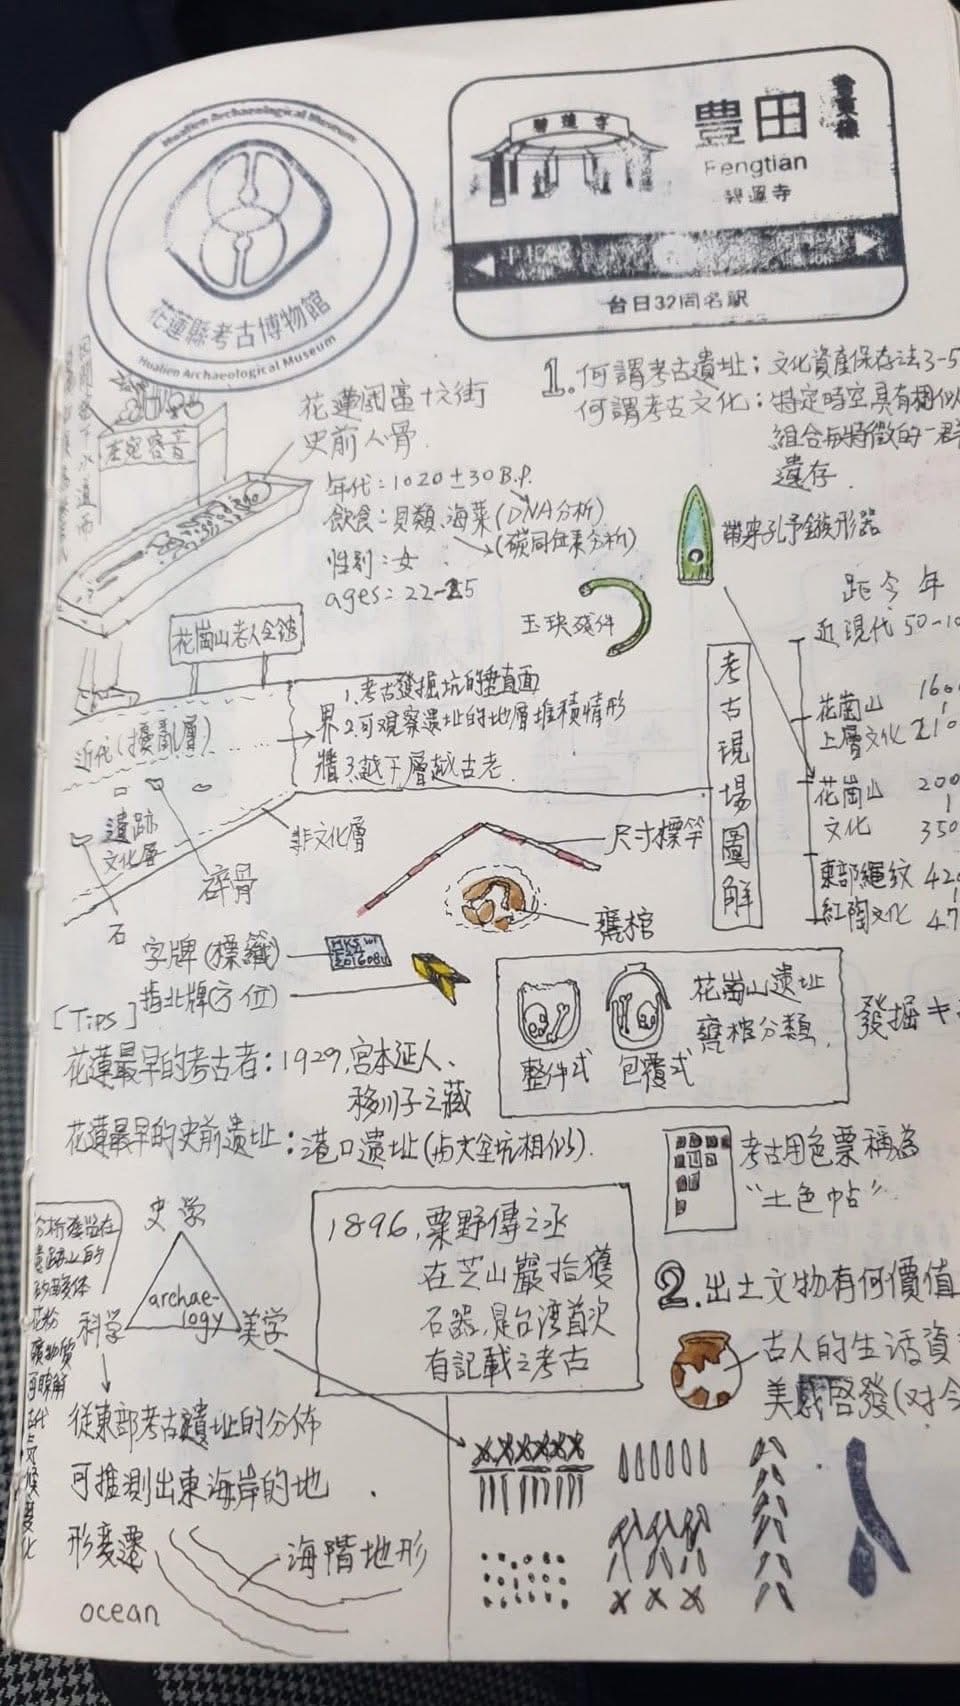 Hualien Archaeological Museum
花蓮縣考古博物館
Hualien Archaeological Museum
豊田
Fengtian
碧蓮寺
台日32同名駅
1.何謂考古遺址：文化資產保存法3-5
何謂考古文化：特定時空具有相似
組合與特徵的一群
遺存.
花蓮國富十六街
史前人骨.
年代：1020±30B.P.
飲食：貝類、海菜(DNA分析)
(碳同位素分析)
性別：女
ages：22-25
帶穿孔矛鏃形器
玉玦殘件
花崗山老人會館
近代(擾亂層)
1.考古發掘坑的垂直面
界2.可觀察遺址的地層堆積情形
牆3.越下層越古老.
遺跡
文化層
非文化層
碎骨
石
尺寸標竿
甕棺
考古現場圖解
距今年
近現代50-10
花崗山
上層文化
160
210
花崗山
文化
200
350
東部繩紋
紅陶文化
420
47
字牌(標籤)
指北牌(方位)
花崗山遺址
甕棺分類.
整件式
包覆式
發掘
[Tips]
花蓮最早的考古者：1929,宮本延人、
移川子之藏
花蓮最早的史前遺址：港口遺址(與大坌坑相似).
考古用色票稱為
"土色帖"
史学
archaeo-
logy
科学
美学
1896,粟野傳之丞
在芝山巖拾獲
石器,是台湾首次
有記載之考古
2.出土文物有何價值
古人的生活資
美感啓發(对今
花粉
礦物質
可瞭解
古代氣候變化
從東部考古遺址的分佈
可推測出東海岸的地
形変遷
海階地形
ocean